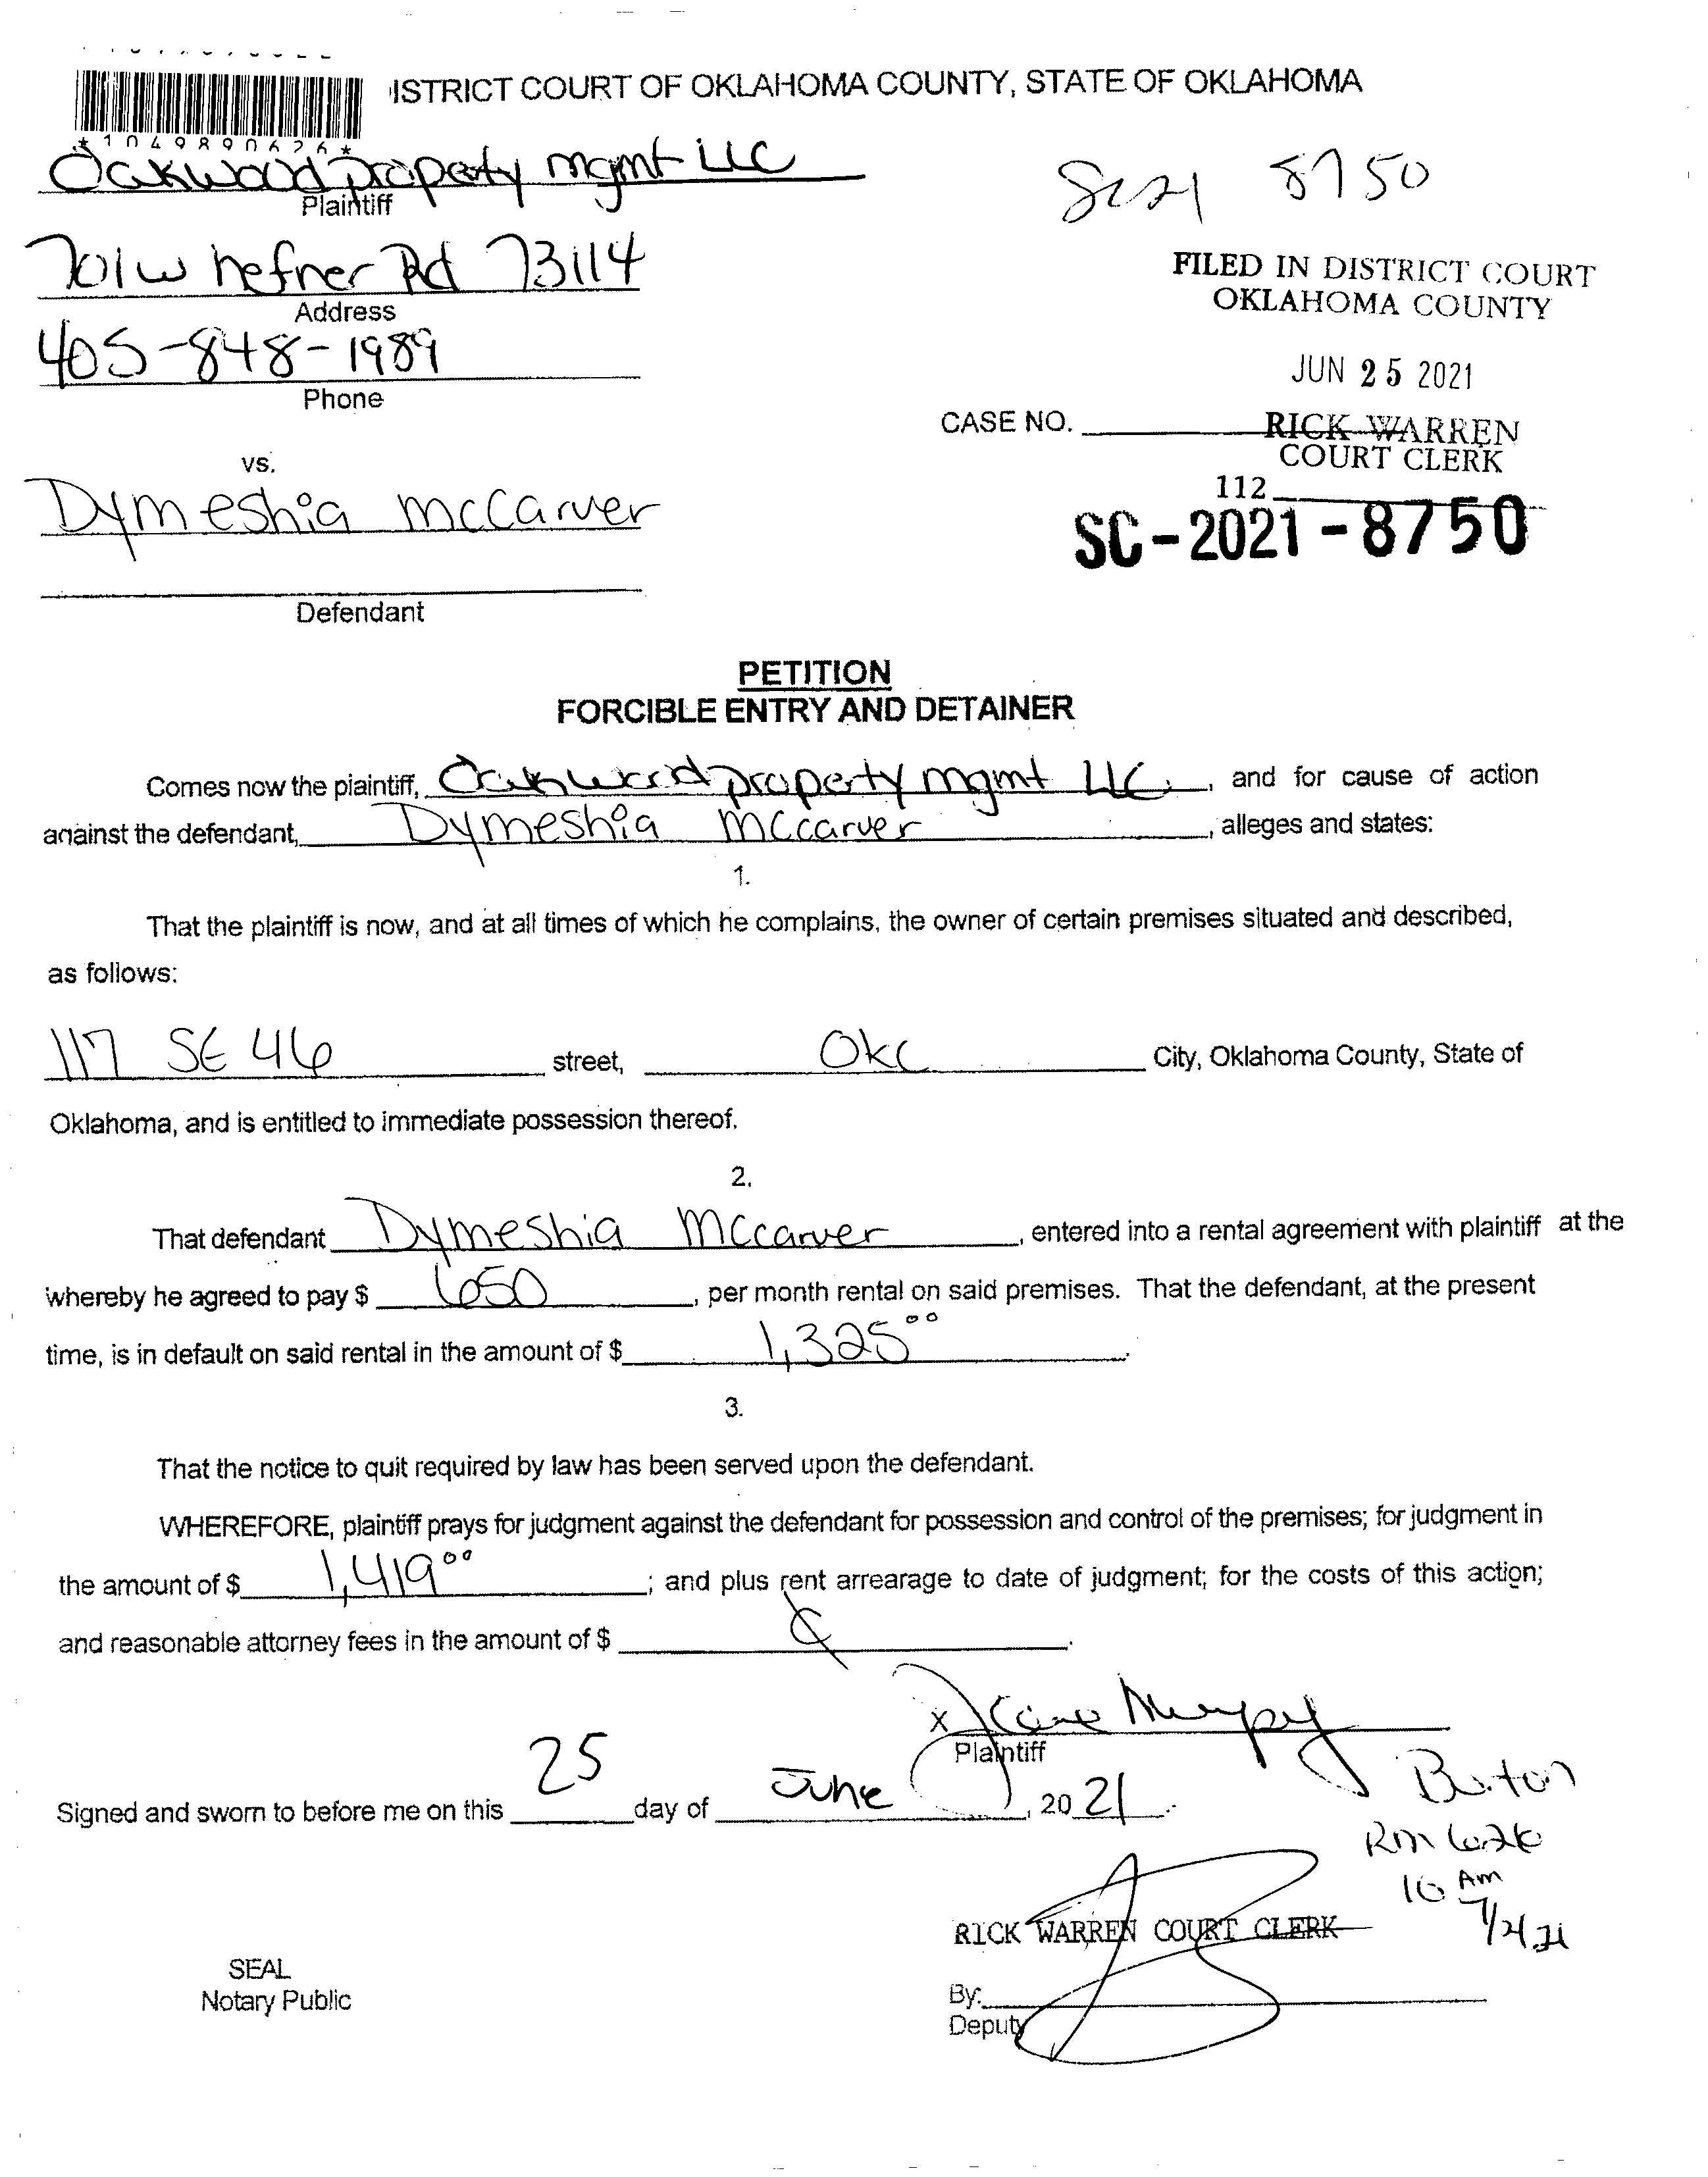 ISTRICT COURT OF OKLAHOMA COUNTY, STATE OF OKLAHOMA
*1049890626*
Oakwood property mgmt LLC
Plaintiff
SC21 8750
701 W hefner Rd 73114
Address
FILED IN DISTRICT COURT
OKLAHOMA COUNTY
405-848-1989
Phone
JUN 25 2021
CASE NO.
RICK WARREN
COURT CLERK
112
SC-2021-8750
vs.
Dymeshia McCarver
Defendant
PETITION
FORCIBLE ENTRY AND DETAINER
Comes now the plaintiff, Oakwood property mgmt LLC, and for cause of action
against the defendant, Dymeshia Mccarver, alleges and states:
1.
That the plaintiff is now, and at all times of which he complains, the owner of certain premises situated and described,
as follows:
117 SE 46 street, OKC City, Oklahoma County, State of
Oklahoma, and is entitled to immediate possession thereof.
2.
That defendant Dymeshia Mccarver, entered into a rental agreement with plaintiff at the
whereby he agreed to pay $ 650, per month rental on said premises. That the defendant, at the present
time, is in default on said rental in the amount of $ 1,325.00.
3.
That the notice to quit required by law has been served upon the defendant.
WHEREFORE, plaintiff prays for judgment against the defendant for possession and control of the premises; for judgment in
the amount of $ 1,419.00; and plus rent arrearage to date of judgment; for the costs of this action;
and reasonable attorney fees in the amount of $
X
Plaintiff
Signed and sworn to before me on this 25 day of June, 2021
Rm
10 AM
RICK WARREN COURT CLERK
SEAL
Notary Public
By:
Deputy